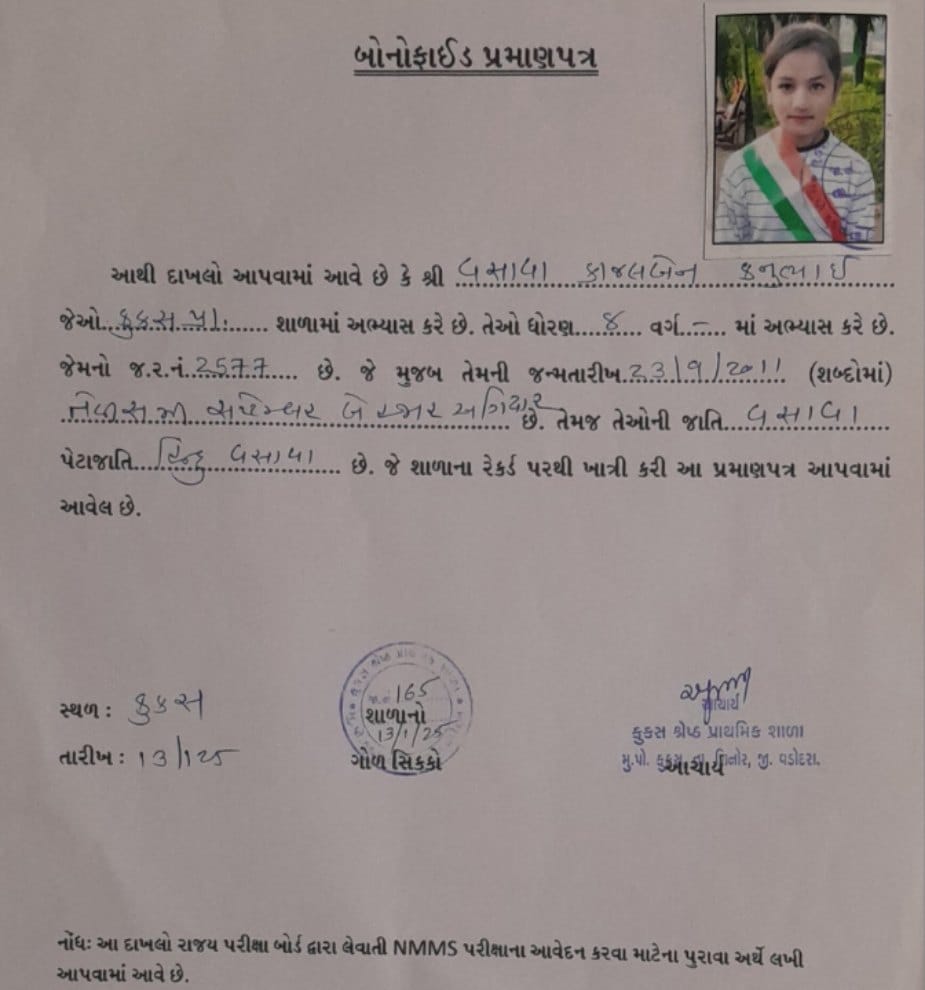 બોનોફાઈડ પ્રમાણપત્ર
આથી દાખલો આપવામાં આવે છે કે શ્રી વસાવા કાજલબેન કનુભાઈ
જેઓ કુકસ પ્રા. શાળામાં અભ્યાસ કરે છે. તેઓ ધોરણ 8 વર્ગ - માં અભ્યાસ કરે છે.
જેમનો જ.ર.નં. 2577 છે. જે મુજબ તેમની જન્મતારીખ 23/9/2011 (શબ્દોમાં)
ત્રેવીસમી સપ્ટેમ્બર બે હજાર અગિયાર છે. તેમજ તેઓની જાતિ વસાવા
પેટાજાતિ હિન્દુ વસાવા છે. જે શાળાના રેકર્ડ પરથી ખાત્રી કરી આ પ્રમાણપત્ર આપવામાં
આવેલ છે.
સ્થળ : કુકસ
તારીખ : 13/1/25
165
શાળાનો
13/1/25
ગોળ સિકકો
આચાર્ય
કુકસ શ્રેષ્ઠ પ્રાથમિક શાળા
મુ.પો. કુકસ, તા. શિનોર, જી. વડોદરા.
આચાર્ય
નોંધઃ આ દાખલો રાજય પરીક્ષા બોર્ડ દ્વારા લેવાતી NMMS પરીક્ષાના આવેદન કરવા માટેના પુરાવા અર્થે લખી
આપવામાં આવે છે.